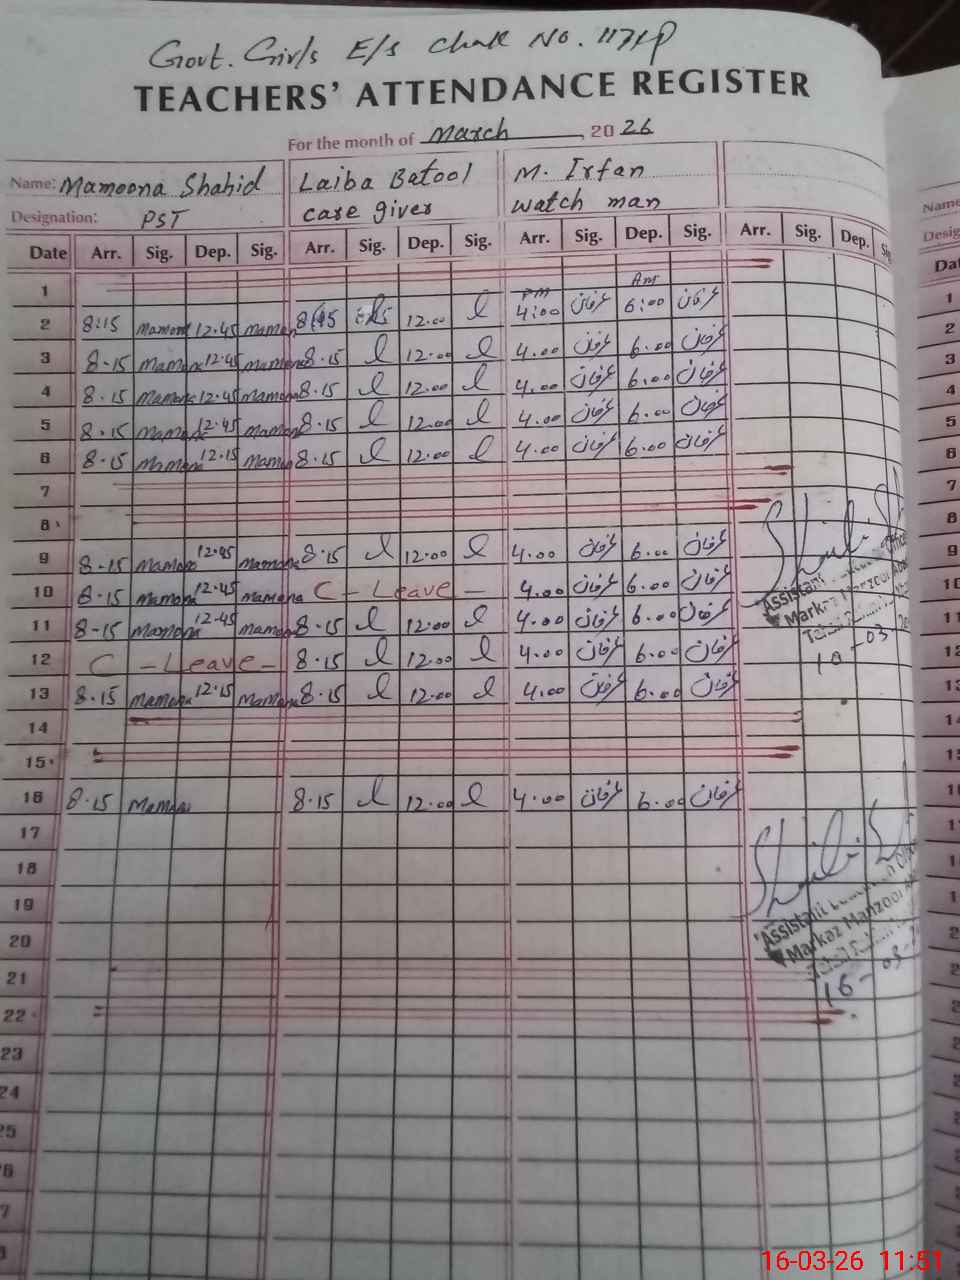 Govt. Girls E/S Chak No. 117/P
TEACHERS' ATTENDANCE REGISTER
For the month of March, 2026
Name: Mamoona Shahid Laiba Batool M. Irfan
Designation: PST care giver watch man
Date Arr. Sig. Dep. Sig. Arr. Sig. Dep. Sig. Arr. Sig. Dep. Sig. Arr. Sig. Dep.
1
2 8:15 Mamona 12.45 Mamona 8:15 12.00 PM 4:00 عرفان Am 6:00 عرفان
3 8.15 Mamona 12.45 Mamona 8.15 12.00 4.00 عرفان 6.00 عرفان
4 8.15 Mamona 12.45 Mamona 8.15 12.00 4.00 عرفان 6.00 عرفان
5 8.15 Mamona 12.45 Mamona 8.15 12.00 4.00 عرفان 6.00 عرفان
6 8.15 Mamona 12.15 Mamona 8.15 12.00 4.00 عرفان 6.00 عرفان
7
8
9 8.15 Mamona 12.45 Mamona 8.15 12.00 4.00 عرفان 6.00 عرفان
10 8.15 Mamona 12.45 Mamona C - Leave - 4.00 عرفان 6.00 عرفان
11 8-15 Mamona 12.45 Mamona 8.15 12.00 4.00 عرفان 6.00 عرفان
12 C - Leave - 8.15 12.00 4.00 عرفان 6.00 عرفان
13 8.15 Mamona 12.15 Mamona 8.15 12.00 4.00 عرفان 6.00 عرفان
14
15
16 8.15 Mamona 8.15 12.00 4.00 عرفان 6.00 عرفان
17
18
19
20
21
22
23
24
25
Assistant
Markaz Manzoor
10-03
Assistant
Markaz Manzoor
16-03
Name
16-03-26 11:51